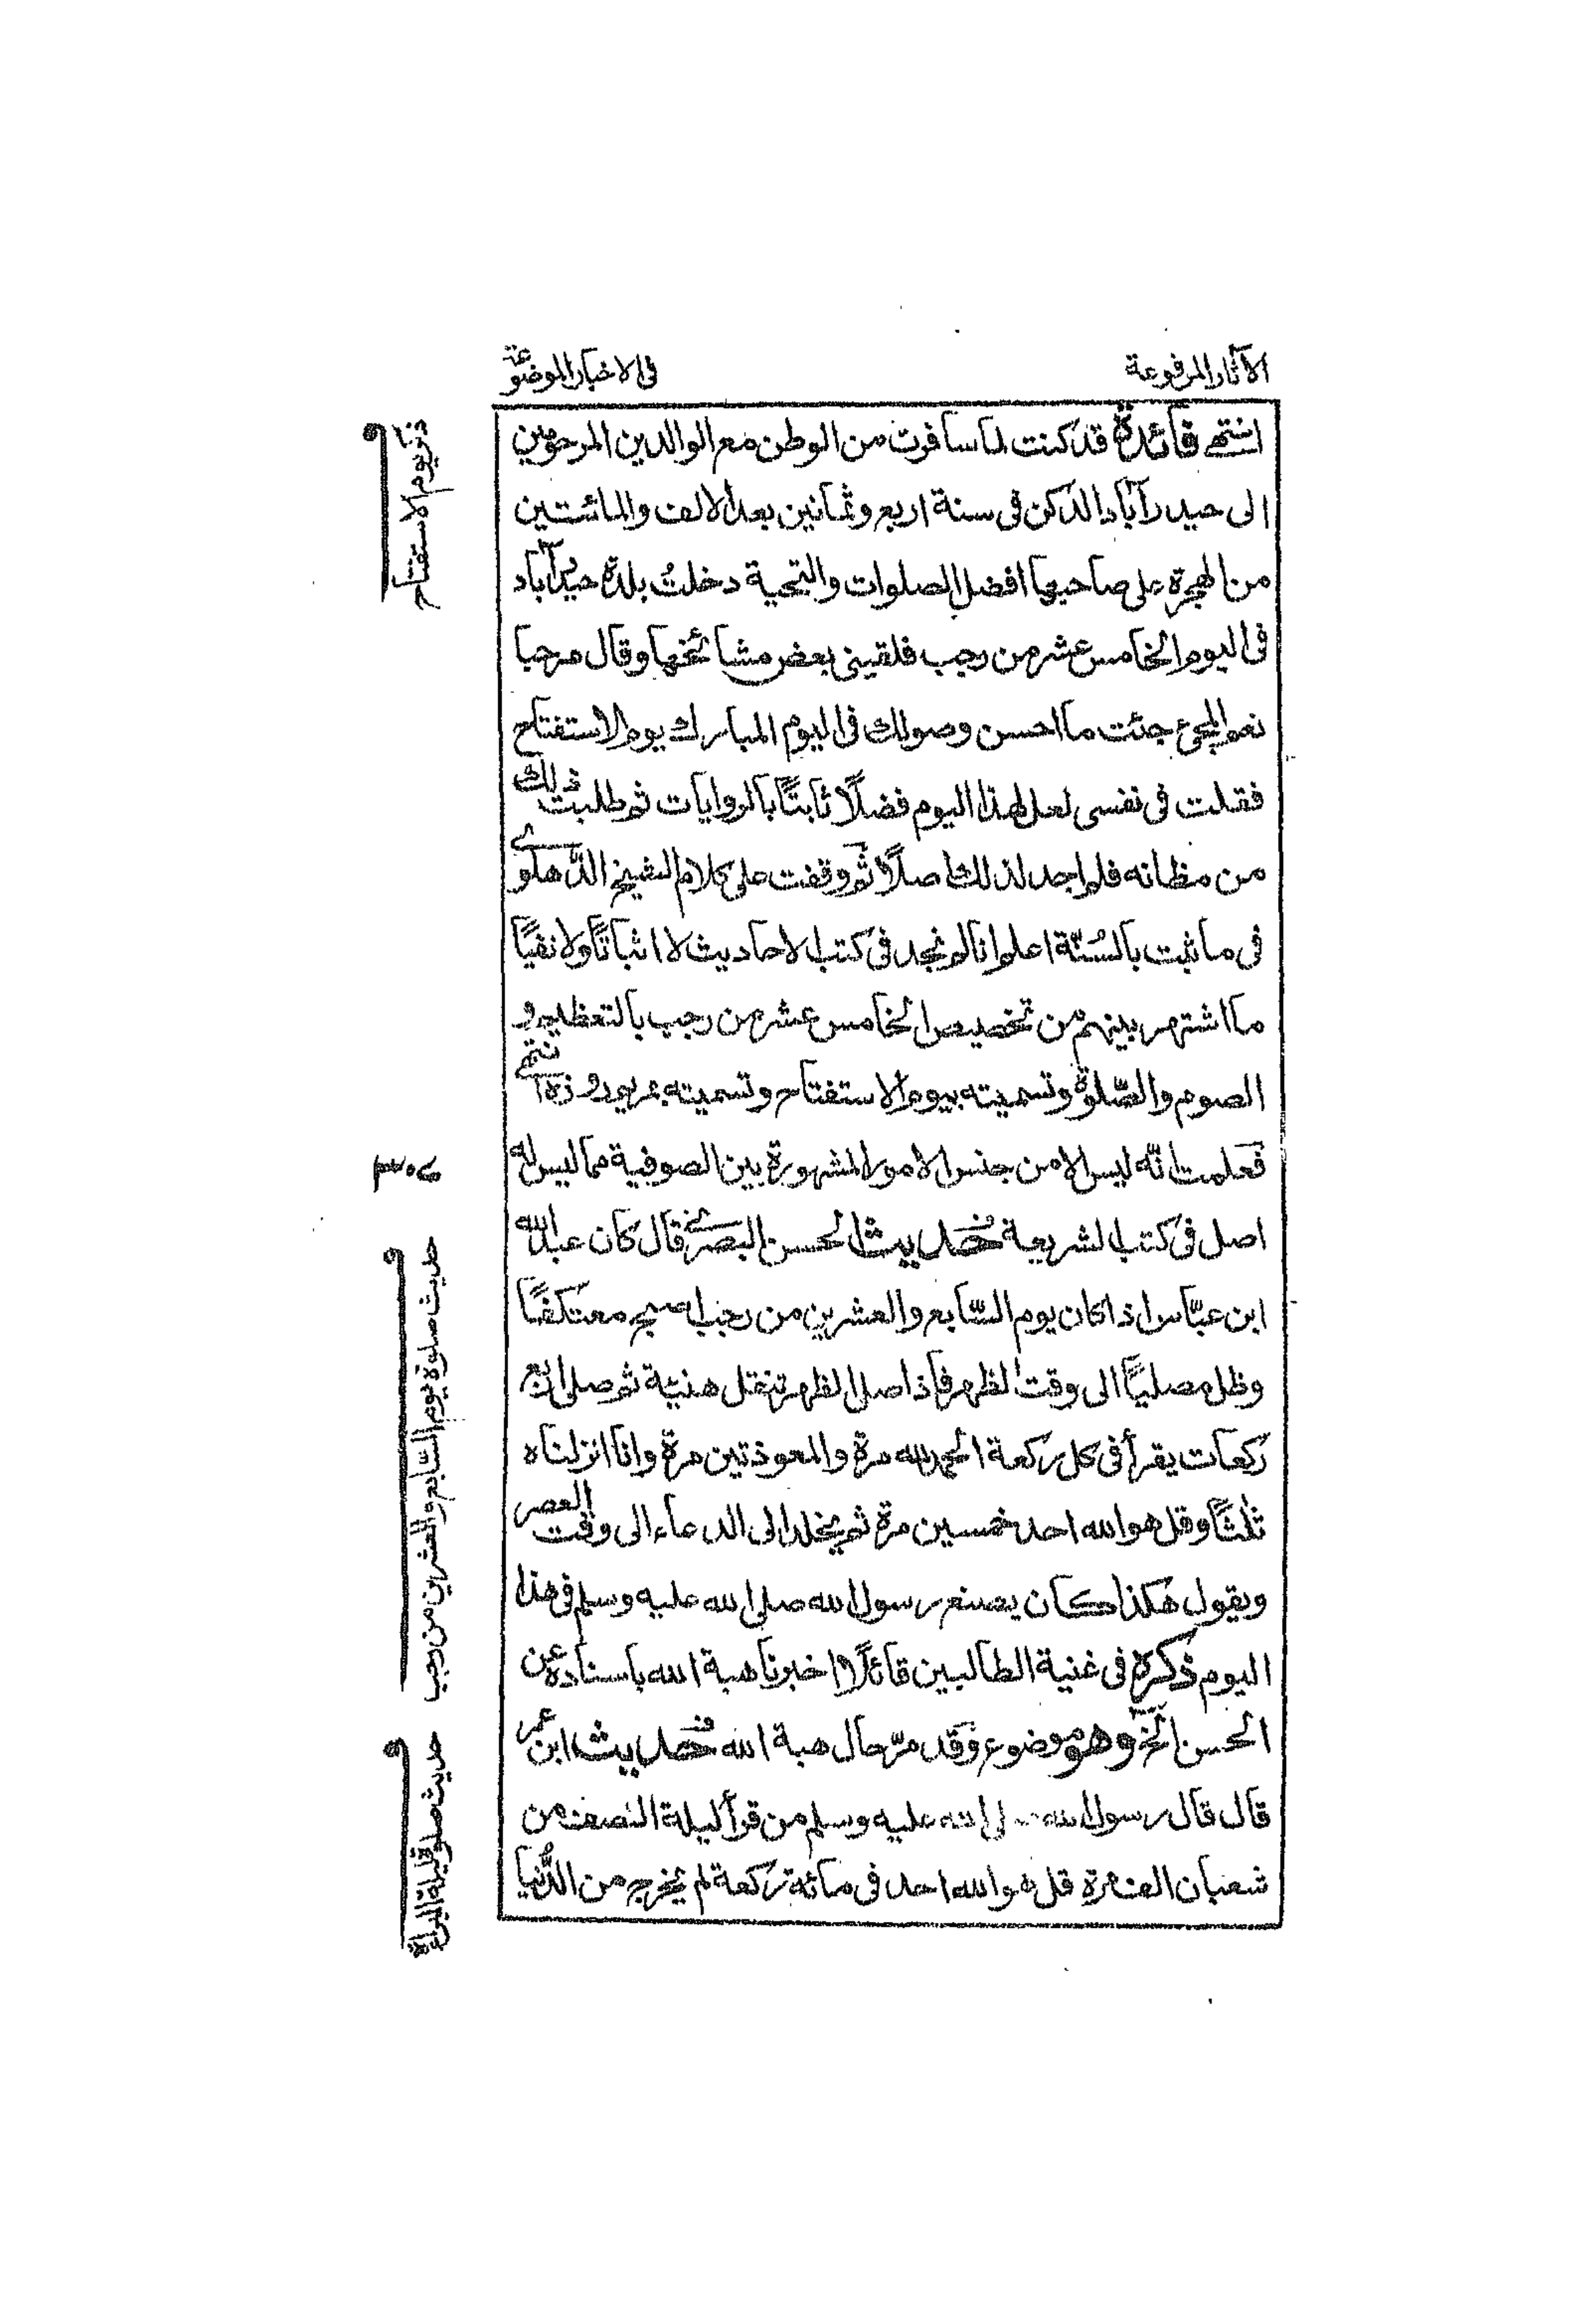 الآثار المرفوعة
فى الاخبار الموضوعة
انتهى فائدة قد كنت لما سافرت من الوطن مع الوالدين المرحومين
الى حيدرآباد الدكن فى سنة اربع وثمانين بعد الالف والمائتين
من الهجرة على صاحبها افضل الصلوات والتحية دخلتُ بلدة حيدرآباد
فى اليوم الخامس عشر من رجب فلقينى بعض مشائخها وقال مرحبا
نعم المجئ جئت ما احسن وصولك فى اليوم المبارك يوم الاستفتاح
فقلت فى نفسى لعل لهذا اليوم فضلًا ثابتًا بالروايات ثم طلبت ذلك
من مظانه فلم اجد لذلك اصلًا ثم وقفت على كلام الشيخ الدهلوى
فى ما ثبت بالسُنّة اعلم انا لم نجد فى كتب الاحاديث لا اثباتًا ولا نفيًا
ما اشتهر بينهم من تخصيص الخامس عشر من رجب بالتعظيم و
الصوم والصّلوة وتسميته بيوم الاستفتاح وتسميته بمريم روزه انتهى
فعلمت انّه ليس الا من جنس الامور المشهورة بين الصوفية مما ليس له
اصل فى كتب الشريعة حديث الحسن البصرى قال كان عبد الله
ابن عبّاس اذا كان يوم السّابع والعشرين من رجب اصبح معتكفًا
وظل مصليًا الى وقت الظهر فاذا صلى الظهر تنفل هنيئة ثم صلى اربع
ركعات يقرأ فى كل ركعة الحمد لله مرة والمعوذتين مرة وانا انزلناه
ثلثًا وقل هو الله احد خمسين مرة ثم يخلد الى الدعاء الى وقت العصر
ويقول هكذا كان يصنع رسول الله صلى الله عليه وسلم فى هذا
اليوم ذكره فى غنية الطالبين قائلًا اخبرنا هبة الله باسناده عن
الحسن الخ وهو موضوع وقد مرّ حال هبة الله حديث ابن عمر
قال قال رسول الله صلى الله عليه وسلم من قرأ ليلة النصف من
شعبان الف مرة قل هو الله احد فى مائة ركعة لم يخرج من الدُّنيا
ذكر يوم الاستفتاح
حديث صلوة يوم السّابع والعشرين من رجب
حديث صلوة ليلة البراءة